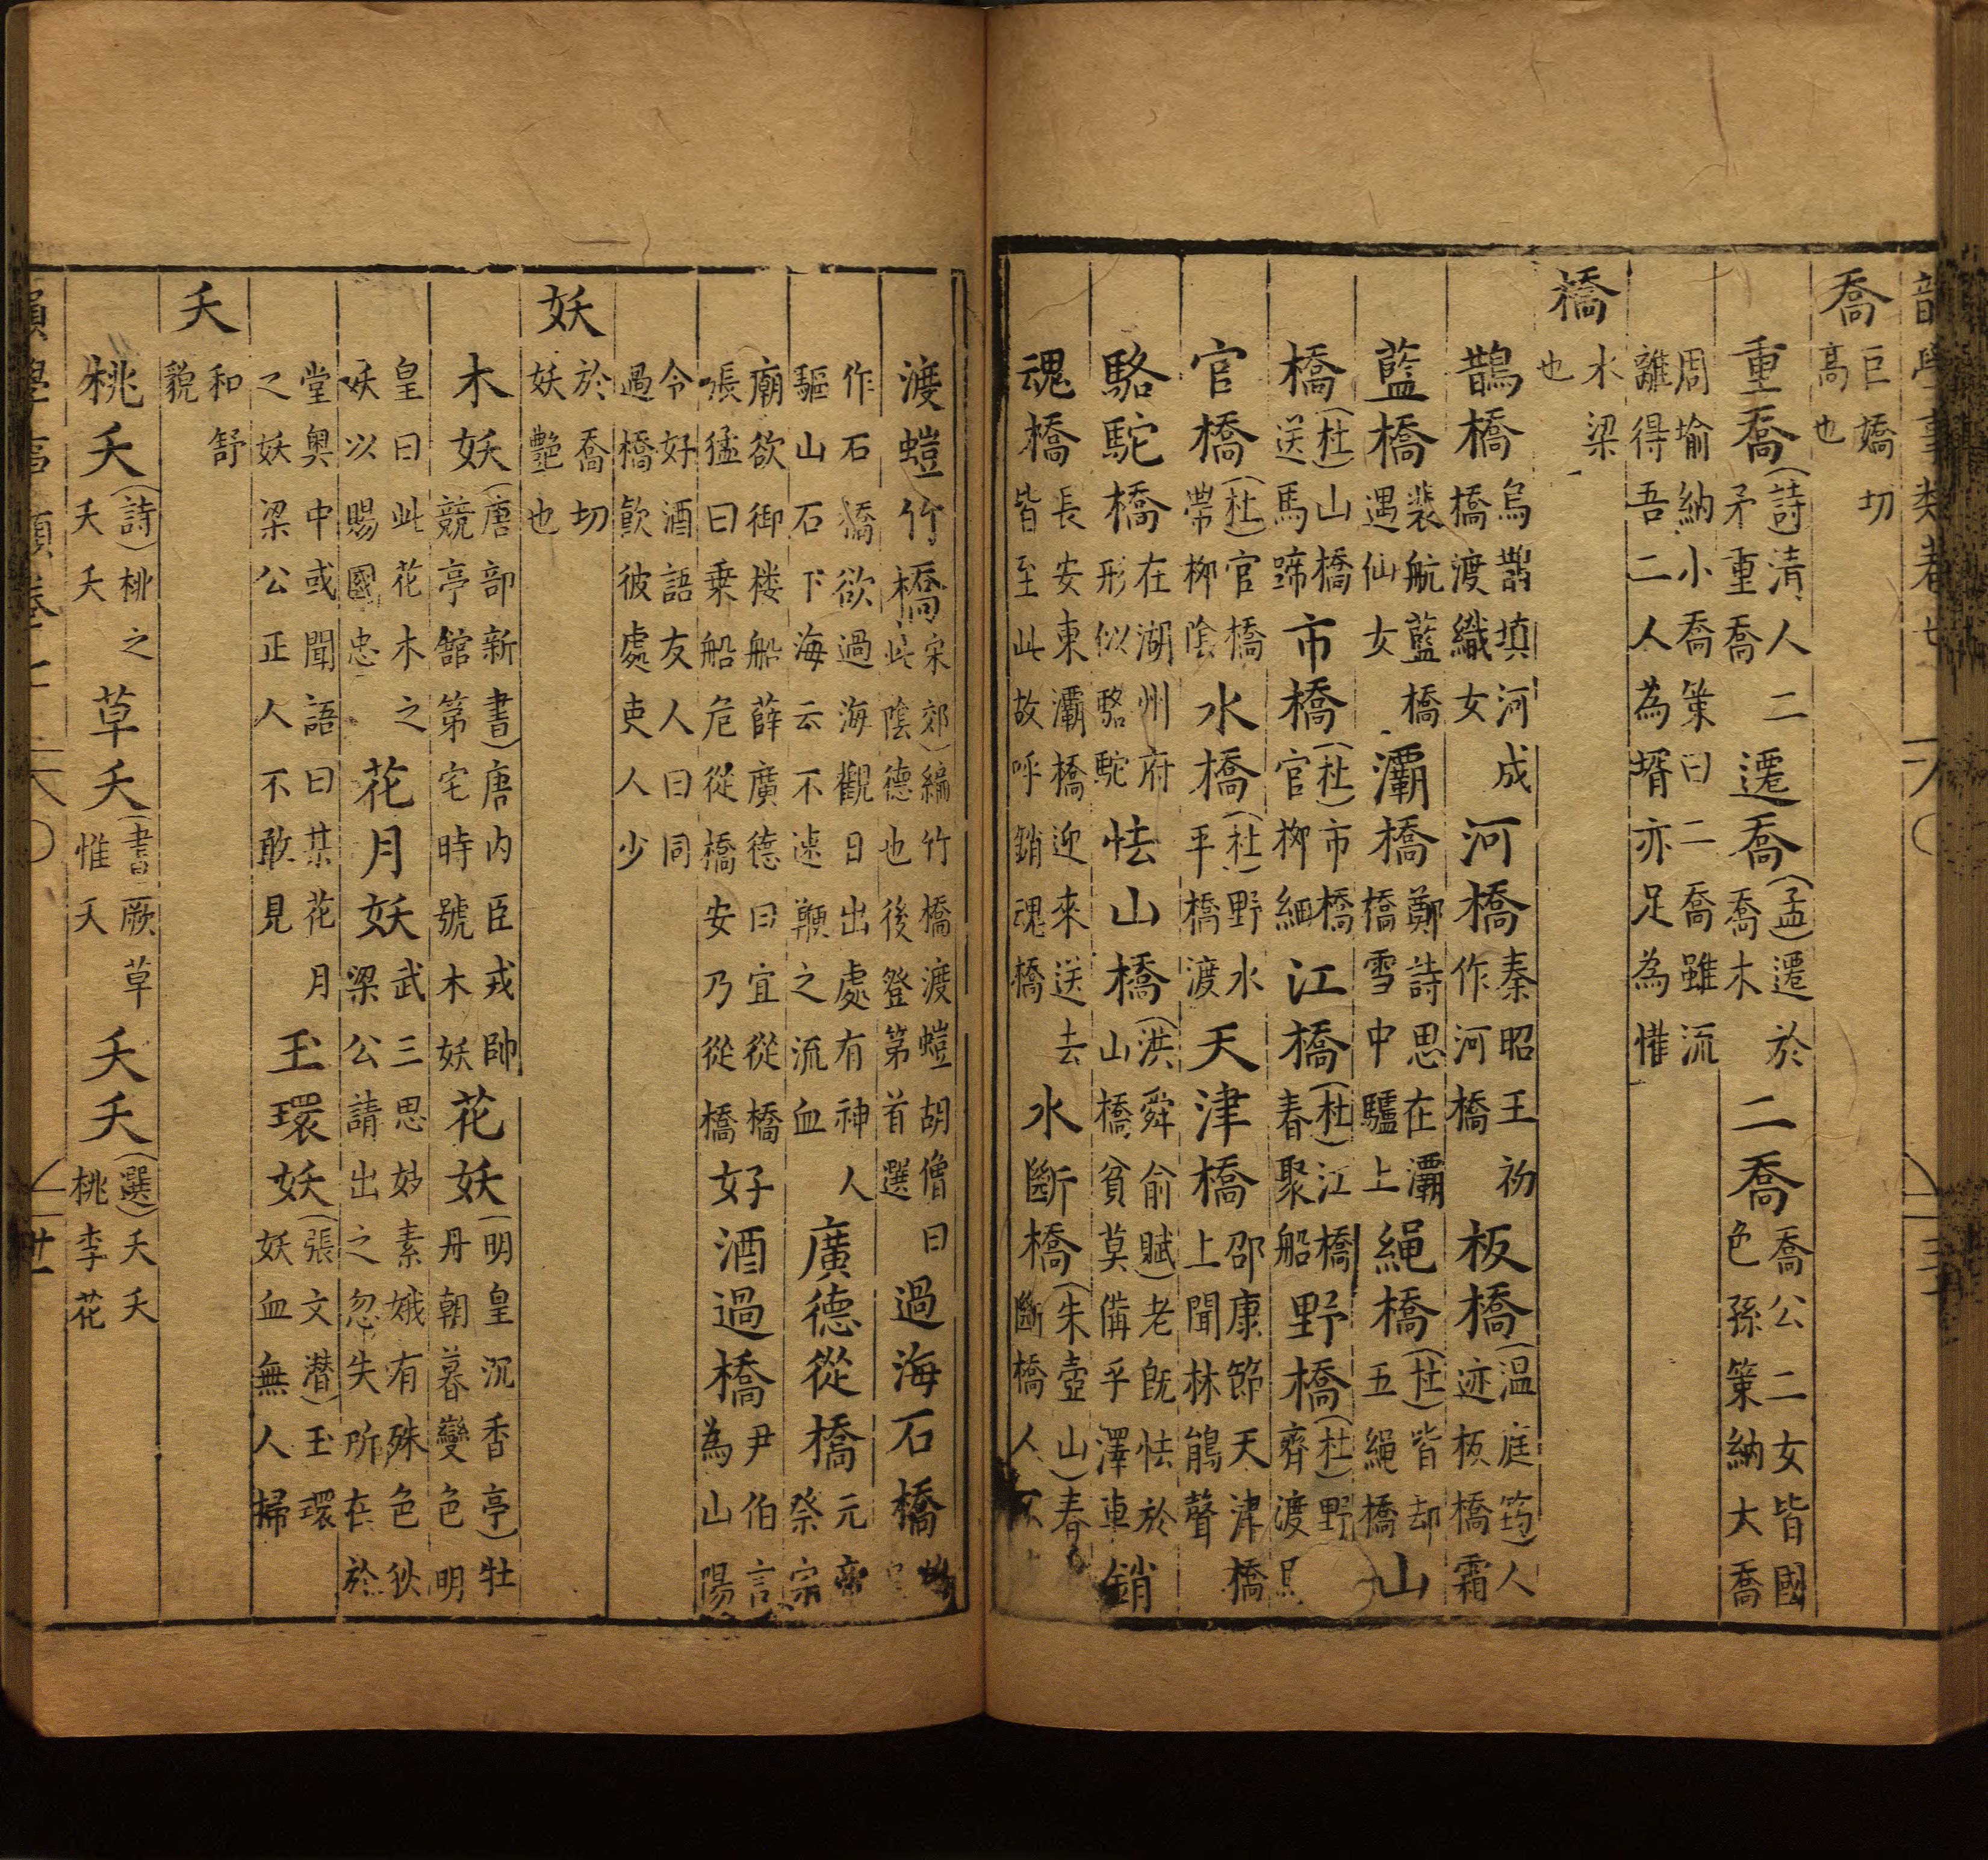 喬巨嬌切高也
重喬(詩)清人二矛重喬遷喬(孟)遷於喬木二喬喬公二女皆國色孫策納大喬
周瑜納小喬策曰二喬雖流離得吾二人為壻亦足為懽
橋水梁也
鵲橋烏鵲填河成橋渡織女河橋秦昭王初作河橋板橋(温庭筠)人迹板橋霜
藍橋裴航藍橋遇仙女灞橋鄭詩思在灞橋雪中驢上繩橋(杜)皆却五繩橋山
橋(杜)山橋送馬蹄市橋(杜)市橋官柳細江橋(杜)江橋春聚船野橋(杜)野橋齊渡馬
官橋(杜)官橋帶柳陰水橋(杜)野水平橋渡天津橋邵康節天津橋上聞林鵑聲
駱駝橋在湖州府形似駱駝怯山橋(洪舜俞賦)老既怯於山橋貧莫備乎澤車銷
魂橋長安東灞橋迎來送去皆至此故呼銷魂橋水斷橋(朱壺山)春斷橋人
渡螘竹橋(宋郊)編竹橋渡螘胡僧曰此陰德也後登第首選過海石橋
作石橋欲過海觀日出處有神人驅山石下海云不速鞭之流血廣德從橋元帝祭宗
廟欲御楼船薛廣德曰宜從橋張猛曰乗船危從橋安乃從橋好酒過橋尹伯言為山陽
令好酒語友人曰同過橋歡彼處吏人少
妖於喬切妖艷也
木妖(唐部新書)唐内臣戎帥競亭館第宅時號木妖花妖(明皇沉香亭)牡丹朝暮變色明
皇曰此花木之妖以賜國忠花月妖武三思妙素娥有殊色狄梁公請出之忽失所在於
堂奧中或聞語曰某花月之妖梁公正人不敢見玉環妖(張文潛)玉環妖血無人掃
夭和舒貌
桃夭(詩)桃之夭夭草夭(書)厥草惟夭夭夭(選)夭夭桃李花